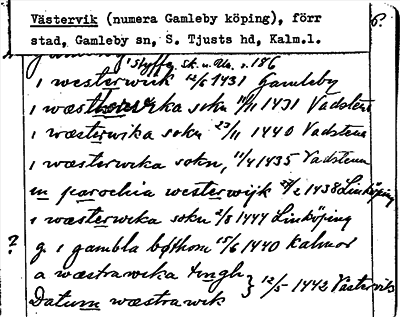 Västervik (numera Gamleby köping), förr
stad, Gamleby sn, S. Tjusts hd, Kalm.l.
Styffe, Sk. u. Un. s. 186
i westerwiik 12/5 1431 Gamleby
i wæsthersvika sokn 11/11 1431 Vadstena
i wæsterwika sokn 23/11 1440 Vadstena
i wæsterwika sokn, 11/4 1435 Vadstena
in parochia westerwijk 27/2 1438 Linköping
i wæsterwika sokn 2/8 1444 Linköping
? g. i gambla bøthom 15/6 1440 Kalmar
a wæstrawika tingh
} 12/5 1442 Västervik
Datum wæstrawik